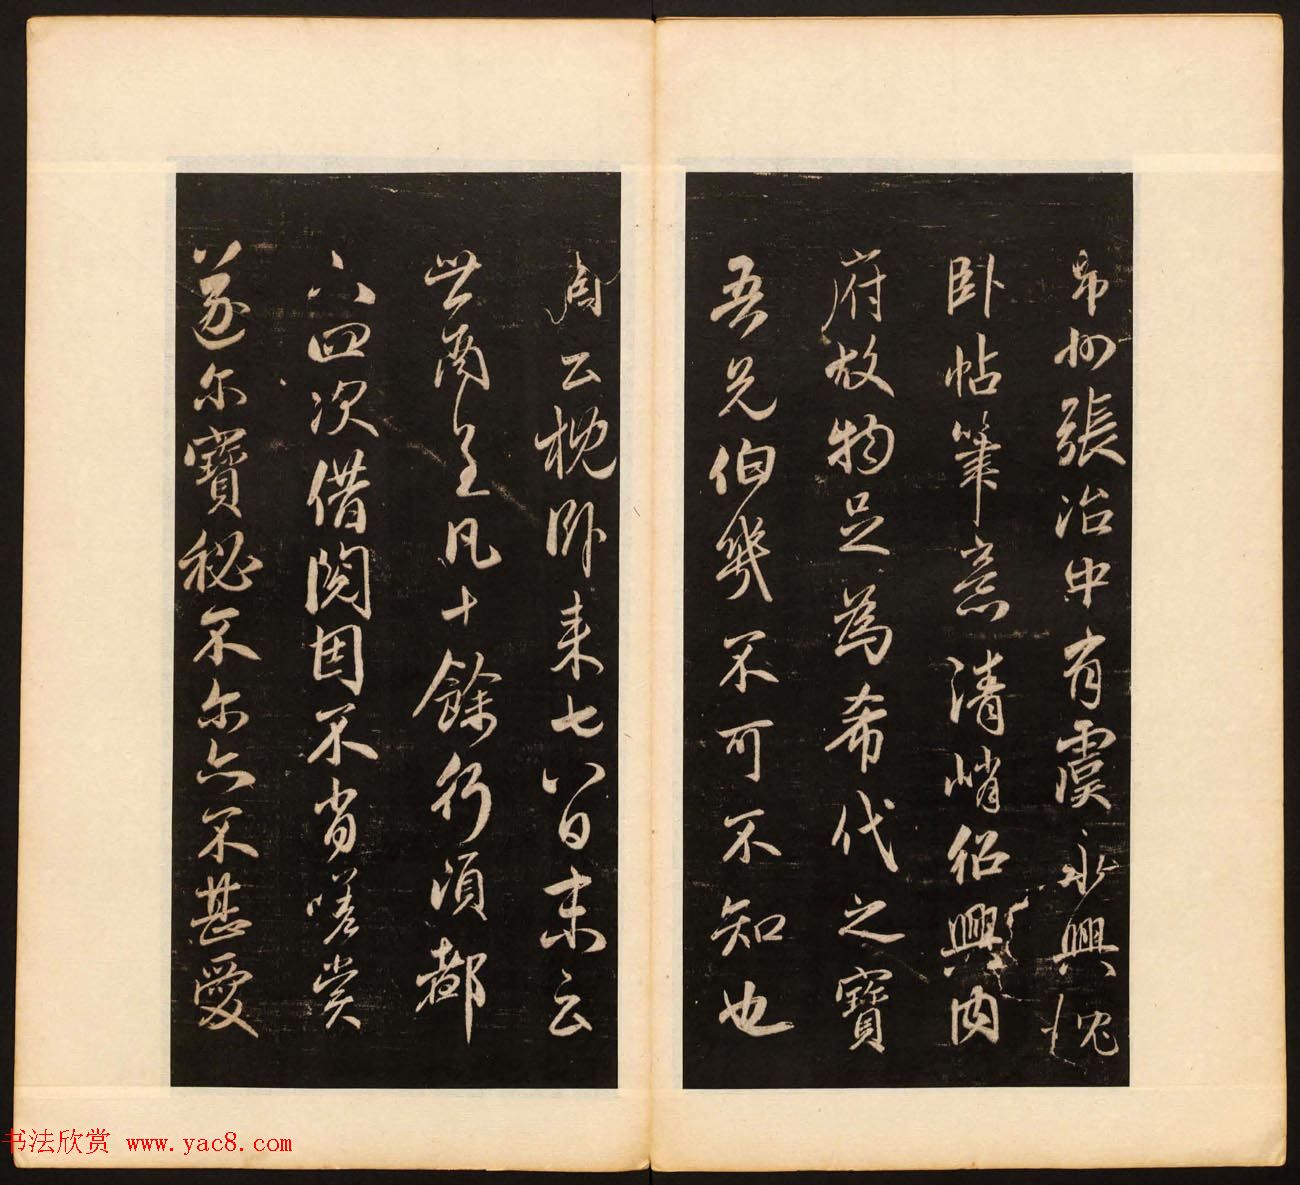 帛州張治中有虞永興枕
卧帖筆意清峭紹興内
府故物足為希代之寶
吾兄伯幾不可不知也
間云枕卧来七八日末云
世南呈凡十餘行須都
下四次借閲因不肯嗟赏
遂尔寶秘不尔亦不甚愛
书法欣赏 www.yac8.com